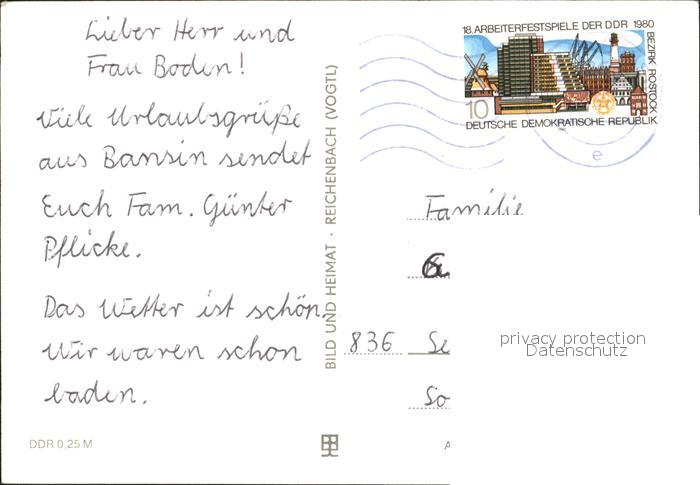 Lieber Herr und
Frau Boden!
Viele Urlaubsgrüße
aus Bansin sendet
Euch Fam. Günter
Pflicke.
Das Wetter ist schön.
Wir waren schon
baden.
DDR 0,25 M
BILD UND HEIMAT · REICHENBACH (VOGTL)
18. ARBEITERFESTSPIELE DER DDR 1980
BEZIRK ROSTOCK
10
DEUTSCHE DEMOKRATISCHE REPUBLIK
e
Familie
836 Se
So
A
privacy protection
Datenschutz